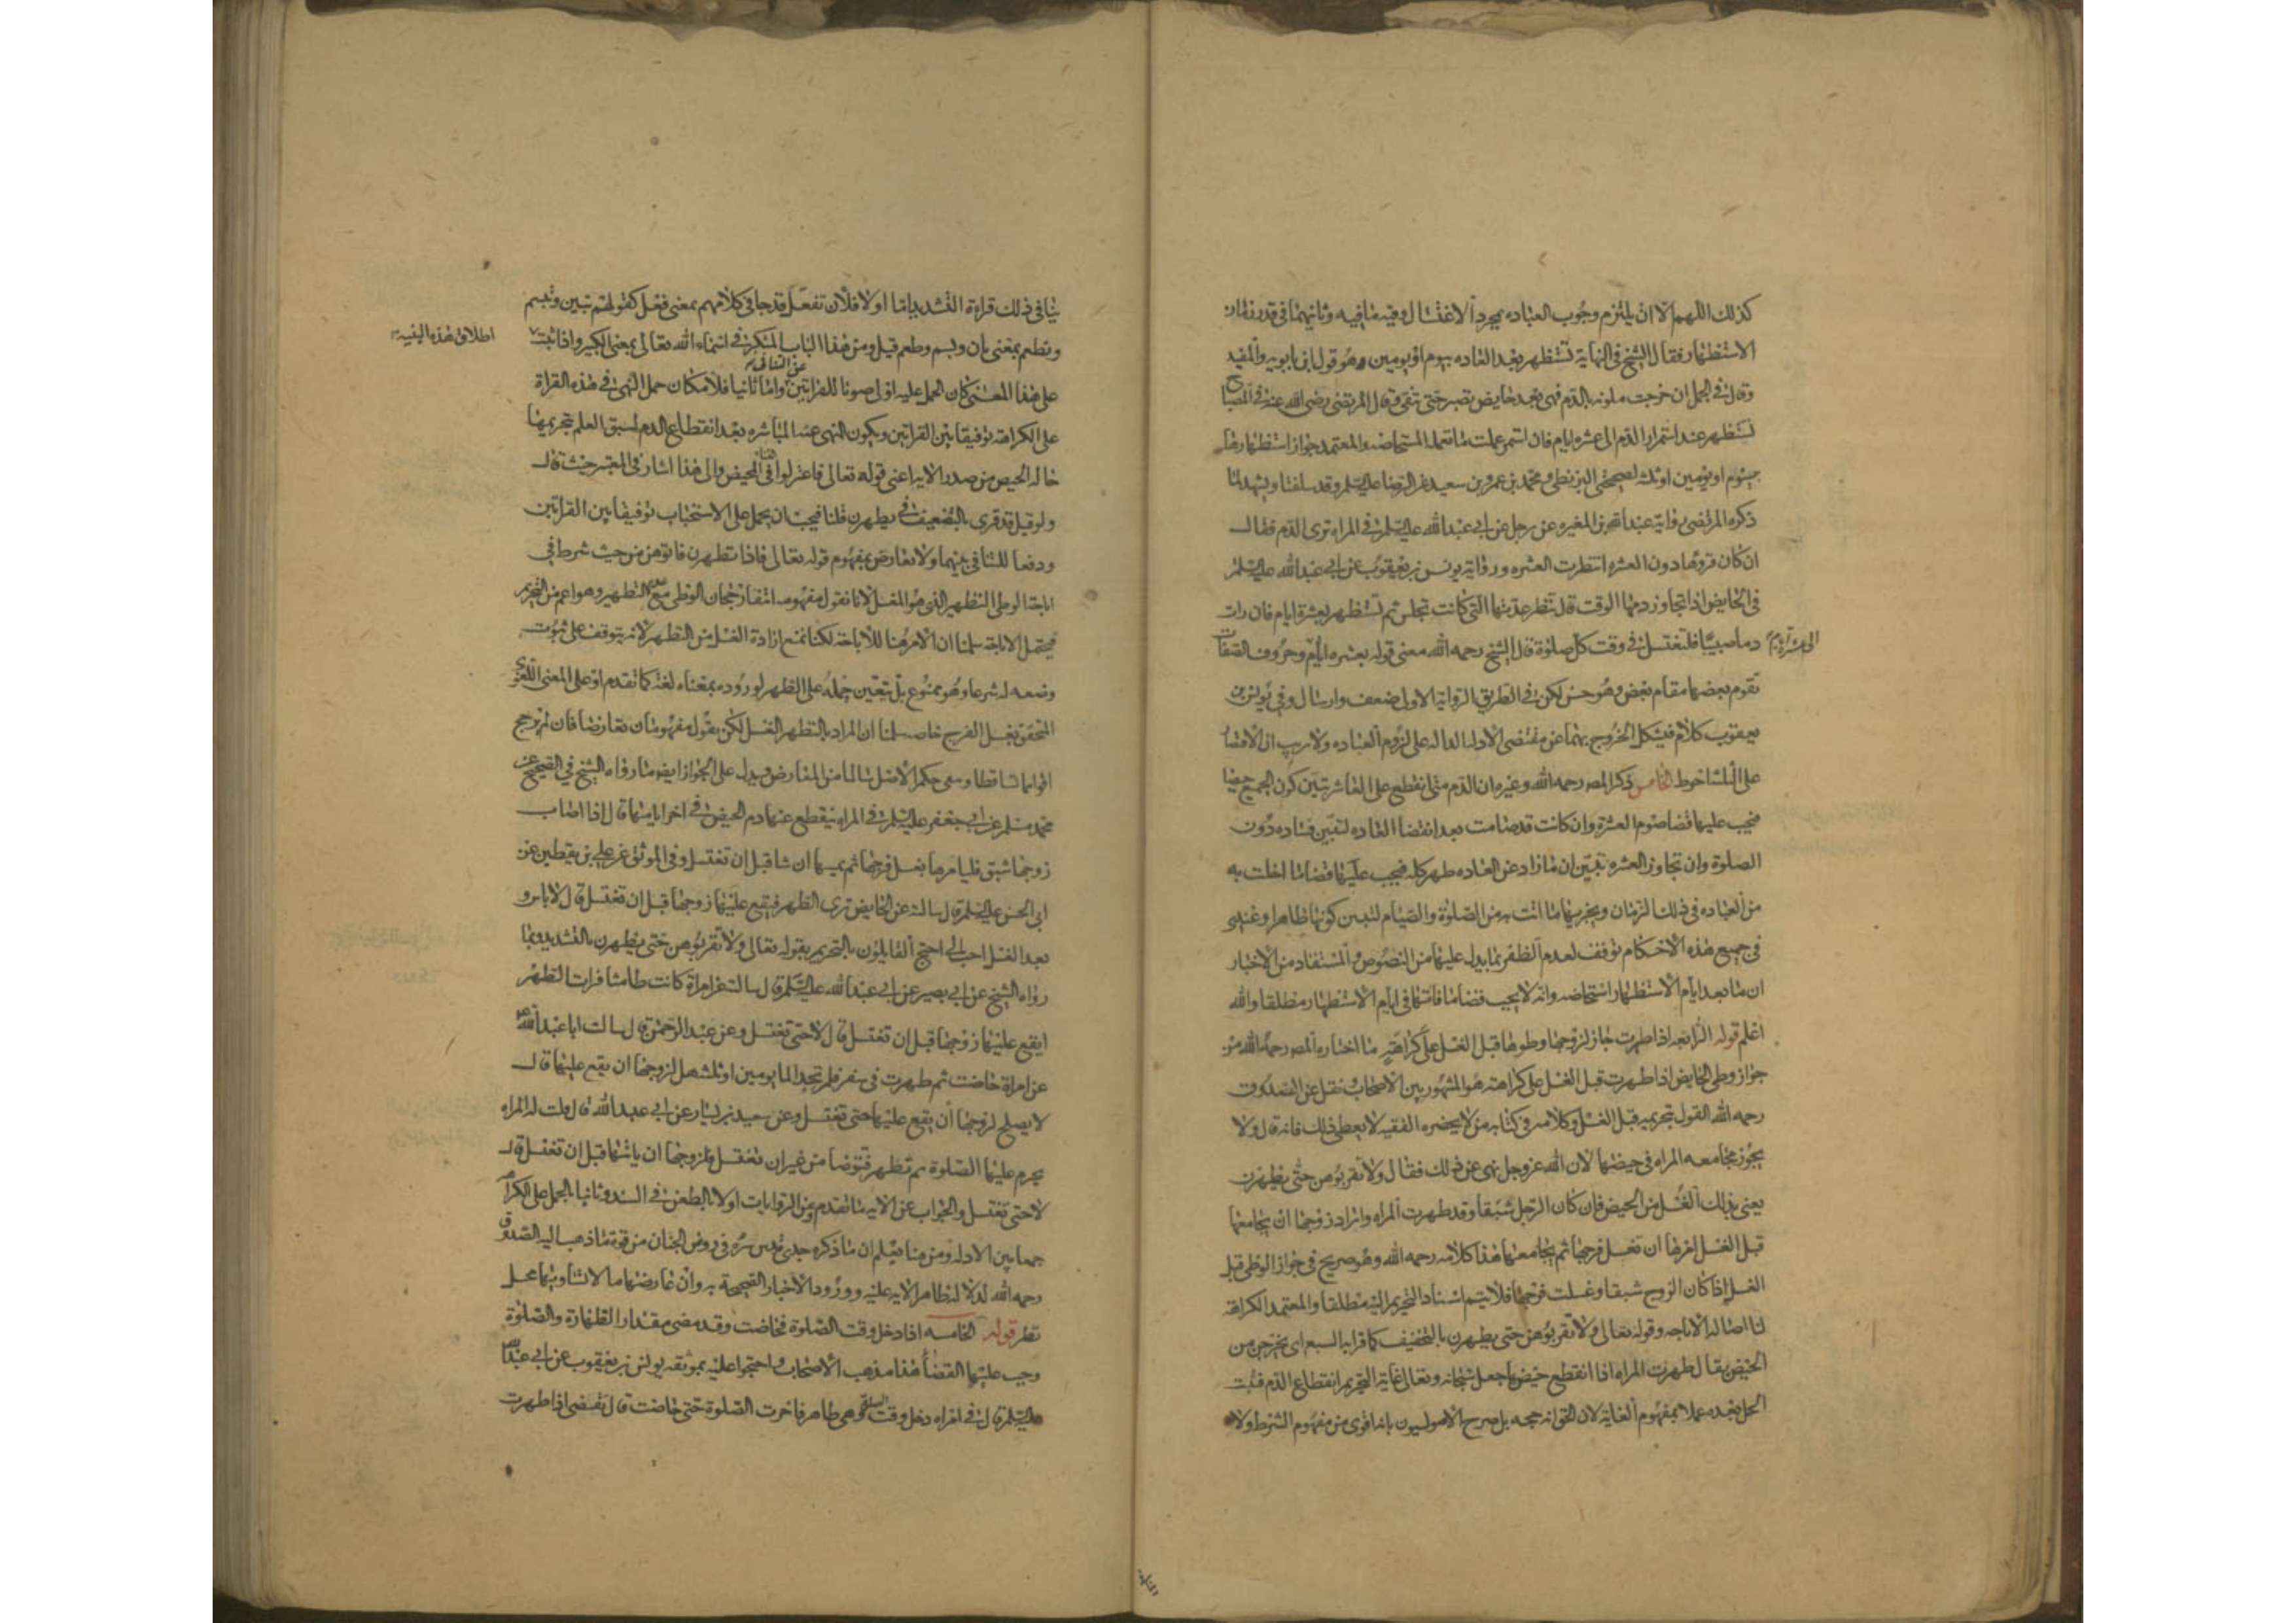 كذلك اللهم الا ان يلتزم وجوب العباده بمجرد الاغتسال وفيه ما فيه وثانيهما في قدر زمان
الاستظهار فقال الشيخ في النهاية تستظهر بعد العاده بيوم او يومين وهو قول ابن بابويه والمفيد
وقال في الجمل ان خرجت ملوثه بالدم فهي بعد حايض تصبر حتى تنقى وقال المرتضى رضي الله عنه في المصباح
تستظهر عند استمرار الدم الى عشره ايام فان استمر عملت ما تعمله المستحاضه والمعتمد جواز استظهارها
بيوم او يومين او ثلثه لصحيحتي البزنطي ومحمد بن عمرو بن سعيد عن الرضا عليه السلم وقد سلفتا ويشهد لما
ذكره المرتضى رواية عبد الله بن المغيره عن رجل عن ابي عبد الله عليه السلم في المراه ترى الدم فقال
ان كان قروها دون العشره انتظرت العشره ورواية يونس بن يعقوب عن ابي عبد الله عليه السلم
في الحايض اذا تجاوز دمها الوقت قال تنظر عدتها التي كانت تجلس ثم تستظهر بعشرة ايام فان رات
دما صبيبا فلتغتسل في وقت كل صلوة قال الشيخ رحمه الله معنى قوله بعشره ايام وحروف الصفات
الى عشرة ايام
تقوم بعضها مقام بعض وهو حسن لكن في الطريق الرواية الاولى ضعف وارسال وفي يونس بن
يعقوب كلام فيشكل الخروج بهما عن مقتضى الادله الداله على لزوم العباده ولا ريب ان الاقتصار
على الثلثه احوط الخامس ذكر المصـ رحمه الله وغيره ان الدم متى انقطع على العاشر تبين كون الجميع حيضا
فيجب عليها قضا صوم العشرة وان كانت قد صامت بعد انقضا العاده لتبين فساده دون
الصلوة وان تجاوز العشره تبين ان ما زاد عن العاده طهر كله فيجب عليها قضا ما اخلت به
من العباده في ذلك الزمان ويجزيها ما اتت به من الصلوة والصيام لتبين كونها طاهرا وعندي
في جميع هذه الاحكام توقف لعدم الظفر بما يدل عليها من النصوص والمستفاد من الاخبار
ان ما بعد ايام الاستظهار استحاضه وانه لا يجب قضا ما فاتها في ايام الاستظهار مطلقا والله
اعلم قوله الرابعه اذا طهرت جاز لزوجها وطوها قبل الغسل على كراهيه ما اختاره المصـ رحمه الله من
جواز وطي الحايض اذا طهرت قبل الغسل على كراهته هو المشهور بين الاصحاب ونقل عن الصدوق
رحمه الله القول بتحريمه قبل الغسل وكلامه في كتابه من لا يحضره الفقيه لا يعطي ذلك فانه قال ولا
يجوز مجامعه المراه في حيضها لان الله عز وجل نهى عن ذلك فقال ولا تقربوهن حتى يطهرن
يعني بذلك الغسل من الحيض فان كان الرجل شبقا وقد طهرت المراه واراد زوجها ان يجامعها
قبل الغسل امرها ان تغسل فرجها ثم يجامعها هذا كلامه رحمه الله وهو صريح في جواز الوطي قبل
الغسل اذا كان الزوج شبقا وغسلت فرجها فلا يتم اسناد التحريم اليه مطلقا والمعتمد الكراهة
لنا اصالة الاباحه وقوله تعالى ولا تقربوهن حتى يطهرن بالتخفيف كما قرا به السبعه اي يخرجن من
الحيض يقال طهرت المراه اذا انقطع حيضها جعل سبحانه وتعالى غاية التحريم انقطاع الدم فثبت
الحل بعده عملا بمفهوم الغاية لان الحق انه حجه بل صرح الاصوليون بانه اقوى من مفهوم الشرط ولا
ينافي ذلك قراءة التشديد اما اولا فلان تفعل قد جا في كلامهم بمعنى فعل كقولهم تبين وتبسم
وتطعم بمعنى بان وبسم وطعم قيل ومن هذا الباب المتكبر في اسماء الله تعالى بمعنى الكبير واذا ثبت
اطلاق هذه البنية
على هذا المعنى كان الحمل عليه اولى صونا للقراتين عن التنافي واما ثانيا فلامكان حمل النهي في هذه القراة
على الكراهة توفيقا بين القراتين ويكون النهي عن المباشره بعد انقطاع الدم لسبق العلم بتحريمها
حاله الحيض من صدر الايه اعني قوله تعالى فاعتزلوا النسا في المحيض والى هذا اشار في المعتبر حيث قال
ولو قيل قد قرى بالتضعيف في يطهرن قلنا فيجب ان يحمل على الاستحباب توفيقا بين القراتين
ودفعا للتنافي بينهما ولا تعارض بمفهوم قوله تعالى فاذا تطهرن فاتوهن من حيث شرط في
اباحة الوطي التطهير الذي هو الغسل لانا نقول مفهومه انتفا رجحان الوطي مع التطهير وهو اعم من التحريم
فيحتمل الاباحة سلمنا ان الامر هنا للاباحة لكنا نمنع ارادة الغسل من التطهر لانه يتوقف على ثبوت
وضعه له شرعا وهو ممنوع بل يتعين حمله على الطهر لوروده بمعناه لغة كما تقدم او على المعنى اللغوي
المتحقق بغسل الفرج خاصه سلمنا ان المراد بالتطهر الغسل لكن نقول مفهومان تعارضا فان لم يرجح
اقواهما تساقطا وبقي حكم الاصل سالما من المعارض ويدل على الجواز ايضا ما رواه الشيخ في الصحيح عن
محمد بن مسلم عن ابي جعفر عليه السلم في المراه ينقطع عنها دم الحيض في اخر ايامها قال اذا اصاب
زوجها شبق فليامرها بغسل فرجها ثم يمسها ان شا قبل ان تغتسل وفي الموثق عن علي بن يقطين عن
ابي الحسن عليه السلم قال سالته عن الحايض ترى الطهر فيقع عليها زوجها قبل ان تغتسل قال لا باس و
بعد الغسل احب الي احتج القايلون بالتحريم بقوله تعالى ولا تقربوهن حتى يطهرن بالتشديد وبما
رواه الشيخ عن ابي بصير عن ابي عبد الله عليه السلم قال سالته عن امراة كانت طامثا فرات الطهر
ايقع عليها زوجها قبل ان تغتسل قال لا حتى تغتسل وعن عبد الرحمن قال سالت ابا عبد الله ع
عن امراة حاضت ثم طهرت في سفر فلم تجد الما يومين او ثلثه هل لزوجها ان يقع عليها قال
لا يصلح لزوجها ان يقع عليها حتى تغتسل وعن سعيد بن يسار عن ابي عبد الله قال قلت له المراه
يحرم عليها الصلوة ثم تطهر فتتوضا من غير ان تغتسل فلزوجها ان ياتيها قبل ان تغتسل قال
لا حتى تغتسل والجواب عن الايه ما تقدم وعن الروايات اولا بالطعن في السند وثانيا بالحمل على الكراهة
جمعا بين الادله ومن هنا يعلم ان ما ذكره جدي قدس سره في روض الجنان من قوة ما ذهب اليه الصدوق
رحمه الله لدلالة ظاهر الايه عليه وورود الاخبار الصحيحة به وان عارضها ما لا يساويها محل
نظر قوله الخامسه اذا دخل وقت الصلوة فحاضت وقد مضى مقدار الطهارة والصلوة
وجب عليها القضا هذا مذهب الاصحاب واحتجوا عليه بموثقه يونس بن يعقوب عن ابي عبد الله
عليه السلم قال في امراه دخل وقت الصلوة وهي طاهر فاخرت الصلوة حتى حاضت قال تقضي اذا طهرت